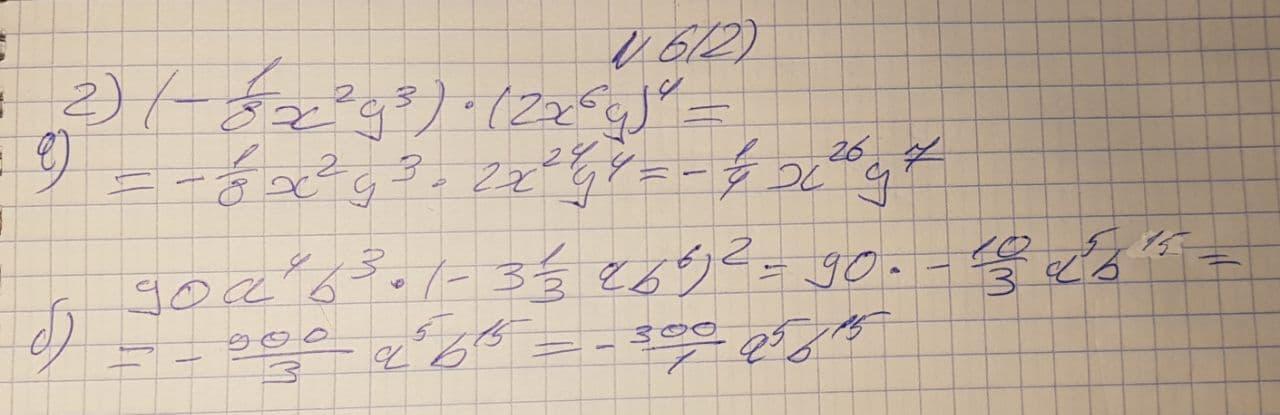 N 6(2)
2) (-1/8 x²y³) · (2x⁶y)⁴ =
а) = -1/8 x²y³ · 2x²⁴y⁴ = -1/4 x²⁶y⁷
90a⁴b³ · (-3 1/3 ab⁶)² = 90 · -10/3 a⁵b¹⁵ =
б) = -900/3 a⁵b¹⁵ = -300/1 a⁵b¹⁵